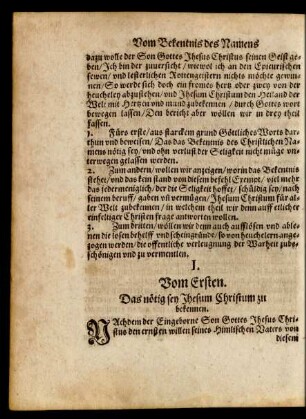 Vom Bekentnis des Namens
dazu wolle der Son Gottes Jhesus Christus seinen Geist ge-
ben/ Jch bin der zuuersicht/ wiewol ich an den Epicurischen
sewen/ vnd lesterlichen Rottengeistern nichts möchte gewin-
nen/ So werde sich doch ein fromes hertz oder zwey von der
heucheley abzusehen/ vnd Jhesum Christum den Heiland der
Welt mit Hertzen vnd mund zubekennen/ durch Gottes wort
bewegen lassen/ Den bericht aber wöllen wir in drey theil
fassen.
1. Fürs erste/ aus starckem grund Göttliches Worts dar-
thun vnd beweisen/ Das das Bekentnis des Christlichen Na-
mens nötig sey/ vnd ohn verlust der Seligkeit nicht müge vn-
terwegen gelassen werden.
2. Zum andern/ wollen wir anzeigen/ worin das Bekentnis
stehet/ vnd das kein stand von diesem befehl exempt/ viel mehr
das jedermeniglich/ der die Seligkeit hoffet/ schüldig sey/ nach
seinem beruff/ gaben vñ vermügen/ Jhesum Christum für al-
ler Welt zubekennen/ in welchem theil wir denn auff etlicher
einfeltiger Christen frage antworten wollen.
3. Zum dritten/ wöllen wir denn auch aufflösen vnd able-
nen die losen behelff vnd scheingründe/ so von heuchelern ange-
zogen werden/ die öffentliche verleugnung der Warheit zube-
schönigen vnd zu vermentlen.
I.
Vom Ersten.
Das nötig sey Jhesum Christum zu
bekennen.
NAchdem der Eingeborne Son Gottes Jhesus Chri-
stus den ernsten willen seines Himlischen Vaters von
diesem